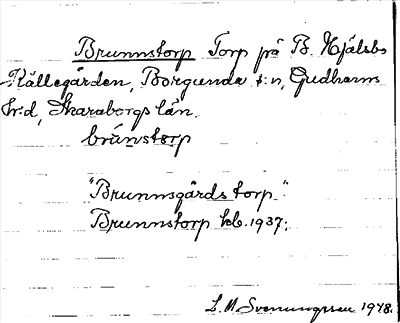 Brunnstorp Torp på B. Hjälsbo
Källegården, Borgunda s:n, Gudhems
hrd, Skaraborgs län.
brúnstɔrp
"Brunnsgårds torp".
Brunnstorp kb. 1937.
L. M. Svenungsson 1948.